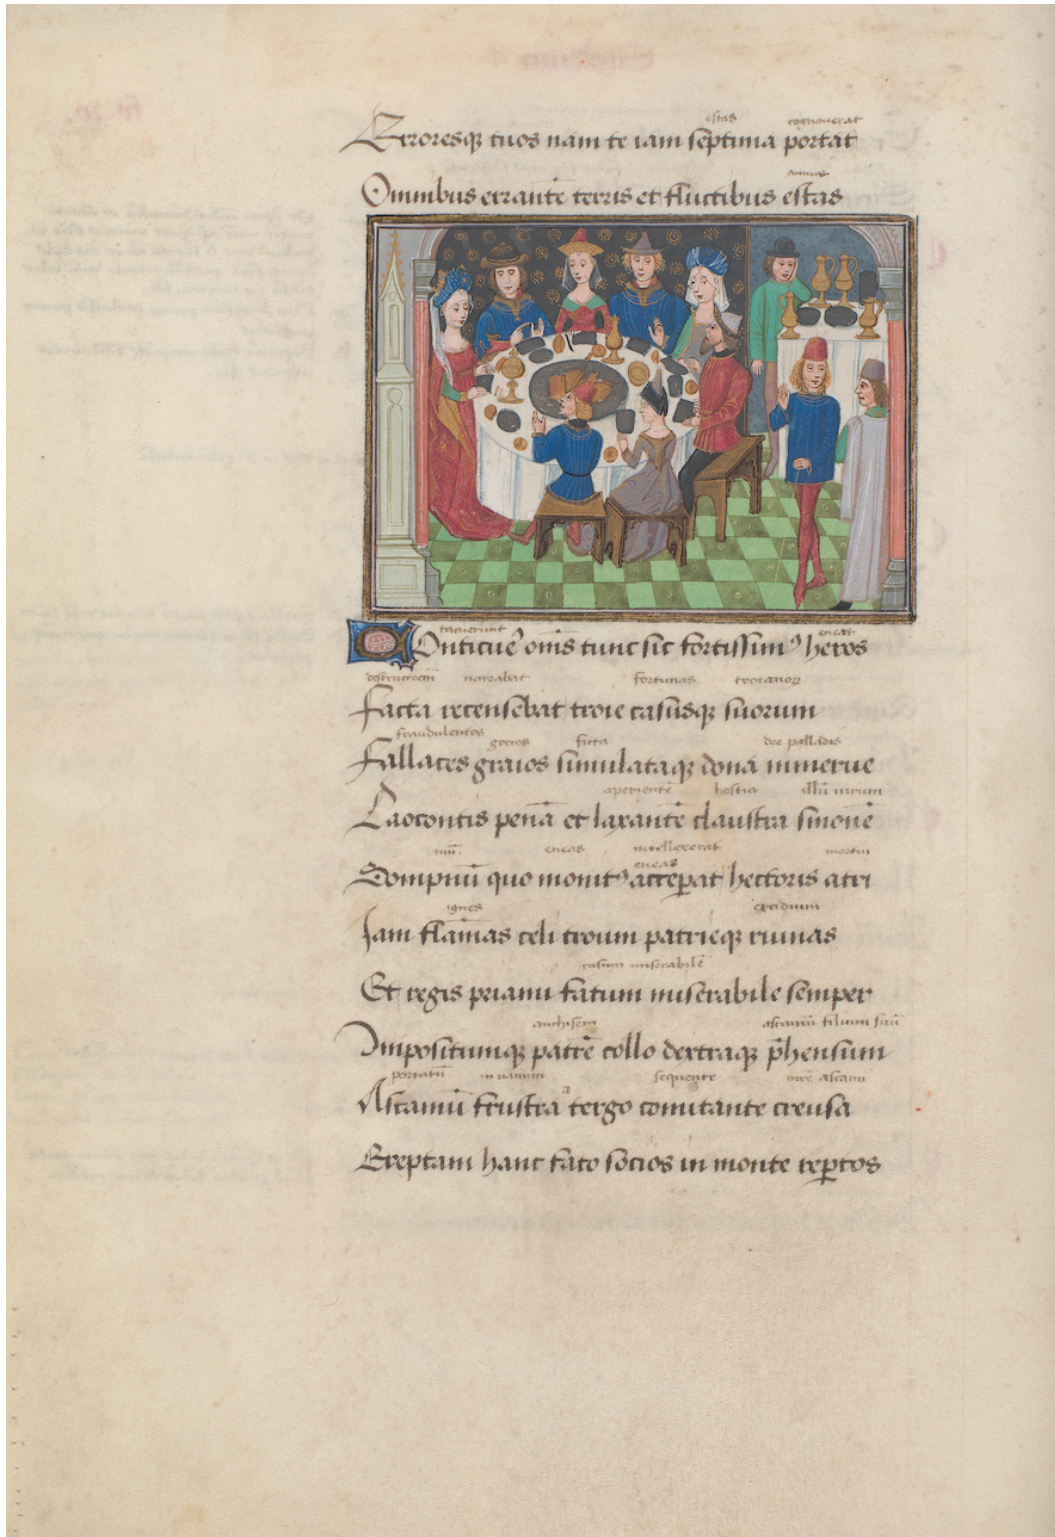 estas cognouerat
Erroresq tuos nam te iam septima portat
annus
Omnibus errantē terris et fluctibus estas
tacuerunt eneas
Conticuer̄ om̄s tunc sic fortissimꝰ heros
narrabat fortunas troianoꝝ
Facta recensebat troie casusq suorum
fraudulentos grecos ficta dee palladis
Fallaces graios simulataq dona minerue
aperientē hostia illū uirum
Laocontis penā et laxantē claustra sinonē
eneas intellexerat mortui
eneas
Sompnū quo monitꝰ acceꝑat hectoris atri
ignes excidium
Iam flam̄as celi troum patrieq ruinas
casum miserabilē
Et regis priami fatum miserabile semper
anchisem ascaniū filium suū
Impositumq patrē collo dextraq p̄hensum
portatū in uanum sequente mr̄e ascanii
Ascaniū frustra a tergo comitante creusa
Ereptam hanc fato socios in monte reꝑtos